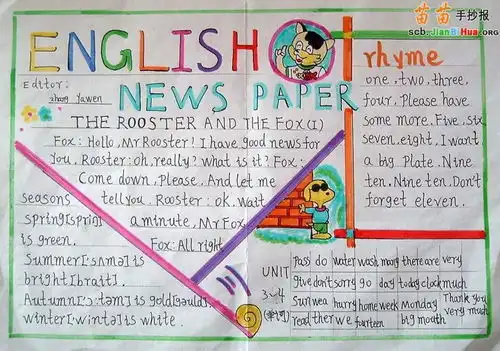 苗苗手抄报
scb.JianBiHua.ORG
ENGLISH
NEWS PAPER
Editor:
zhang Yawen
THE ROOSTER AND THE FOX(I)
Fox: Hello, Mr Rooster! I have good news for
you. Rooster: oh, really? what is it? Fox:
Come down, Please. And let me
tell you. Rooster: ok. wait
a minute, Mr Fox
Fox: All right
seasons
spring[spriŋ]
is green.
Summer['sʌmə] is
bright[brait].
Autumn['ɔ:təm] is gold[gəuld].
winter['wintə] is white.
rhyme
one, two, three,
four, Please have
some more. Five, six
seven, eight, I want
a big Plate. Nine
ten, Nine ten, Don't
forget eleven.
UNIT
3-4
Pass do water wash many there are very
give don't sorry go day today clock much
sun wea hurry home week Monday Thank you very much
read there we fourteen big mouth